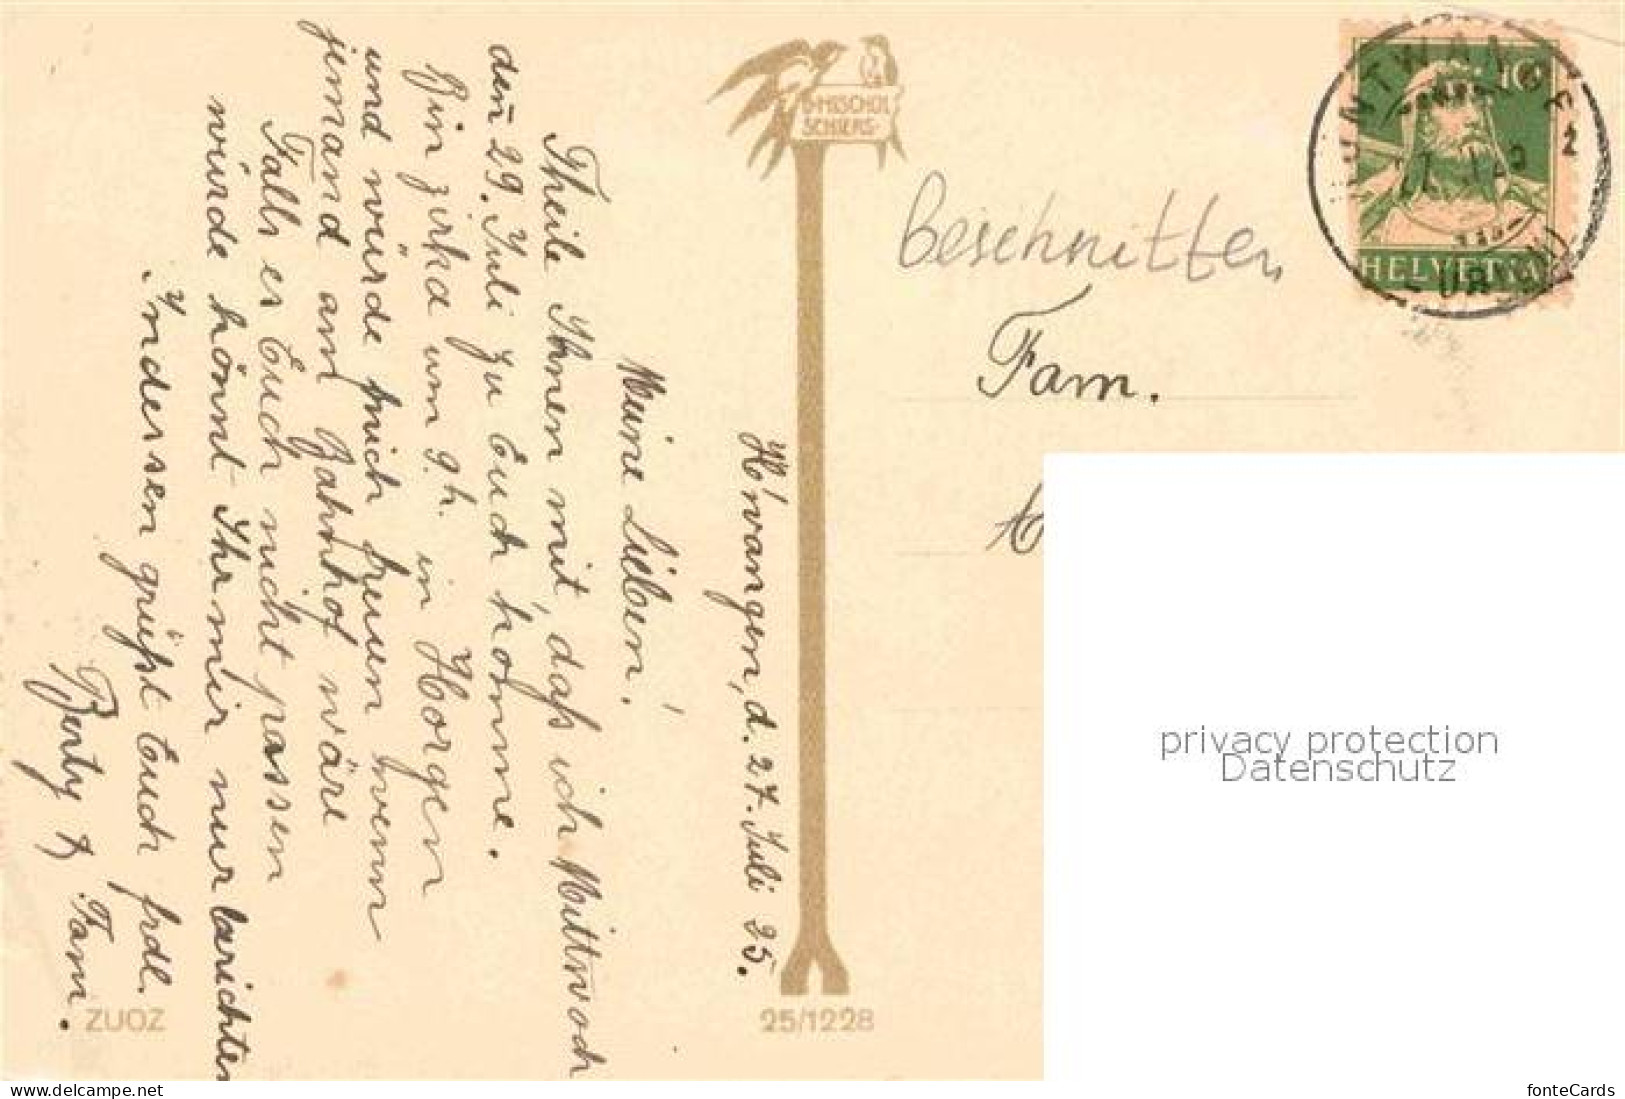 H'wangen, d. 27. Juli 25.
Meine Lieben!
Theile Ihnen mit, daß ich Mittwoch
den 29. Juli zu Euch komme.
Bin zirka um 9 h. in Horgen
und würde mich freuen wenn
jemand am Bahnhof wäre
Falls es Euch nicht passen
würde könnt Ihr mir nur berichten
Indessen grüßt Euch frdl.
Berty & Fam.
ZUOZ
B. MISCHOL
SCHIERS
25/1228
Beschnitten
Fam.
10
HELVETIA
privacy protection
Datenschutz
www.delcampe.net
fonteCards